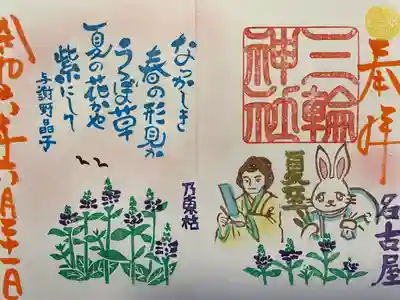 奉拝
三輪
神社
名古屋
夏至
なつかしき
春の形見か
うつぼ草
夏の花かや
紫にして
与謝野晶子
乃東枯
令和六年六月二十一日